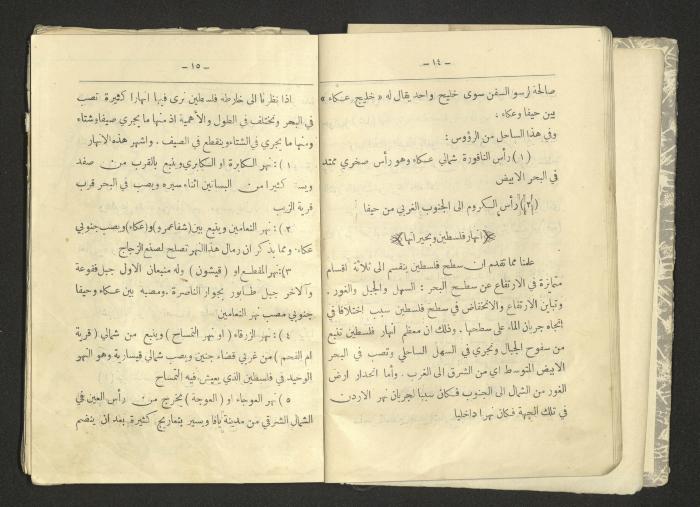 - ١٤ -
صالحة لرسو السفن سوى خليج واحد يقال له « خليج عكاء »
بين حيفا وعكاء .
وفي هذا الساحل من الرؤوس :
( ١ ) رأس الناقورة شمالي عكاء وهو رأس صخري ممتد
في البحر الابيض
(٢) رأس الكروم الى الجنوب الغربي من حيفا
انهار فلسطين وبحيراتها
علمنا مما تقدم ان سطح فلسطين ينقسم الى ثلاثة اقسام
متمايزة في الارتفاع عن سطح البحر : السهل والجبل والغور .
وتباين الارتفاع والانخفاض في سطح فلسطين سبب اختلافا في
اتجاه جريان الماء على سطحها . وذلك ان معظم انهار فلسطين تنبع
من سفوح الجبال وتجري في السهل الساحلي وتصب في البحر
الابيض المتوسط اي من الشرق الى الغرب . وأما انحدار ارض
الغور من الشمال الى الجنوب فكان سببا لجريان نهر الاردن
في تلك الجهة فكان نهرا داخليا
- ١٥ -
اذا نظرنا الى خارطة فلسطين نرى فيها انهارا كثيرة تصب
في البحر وتختلف في الطول والأهمية اذ منها ما يجري صيفا وشتاء
ومنها ما يجري في الشتاء وينقطع في الصيف . واشهر هذه الانهار
١ ) : نهر الكابرة او الكابري وينبع بالقرب من صفد
ويسقي كثيرا من البساتين اثناء سيره ويصب في البحر قرب
قرية الزيب
٢ ) : نهر النعامين وينبع بين (شفاعمرو) و(عكاء) ويصب جنوبي
عكاء . ومما يذكر ان رمال هذا النهر تصلح لصنع الزجاج
٣) : نهر المقطع او ( قيشون ) وله منبعان الاول جبل فقوعة
والآخر جبل طابور بجوار الناصرة . ومصبه بين عكاء وحيفا
جنوبي مصب نهر النعامين
٤ ) : نهر الزرقاء ( او نهر التمساح ) وينبع من شمالي ( قرية
ام الفحم ) من غربي قضاء جنين ويصب شمالي قيسارية وهو النهر
الوحيد في فلسطين الذي يعيش فيه التمساح
٥ ) نهر العوجاء او ( العوجة ) يخرج من رأس العين في
الشمال الشرقي من مدينة يافا ويسير بتعاريج كثيرة بعد ان ينضم